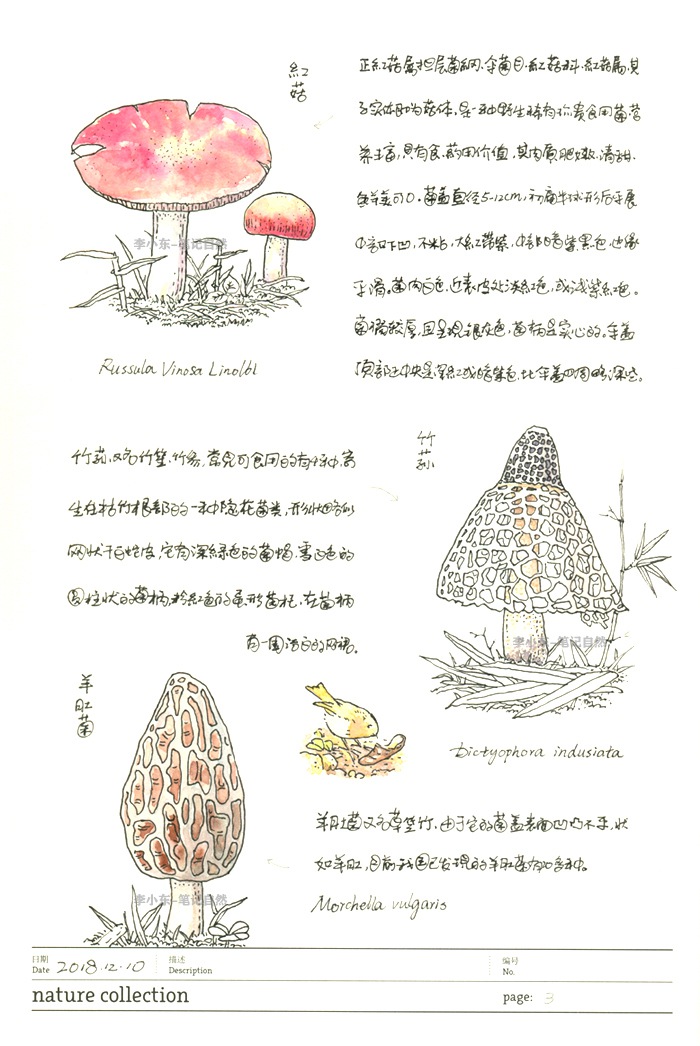 紅菇
正紅菇属担层菌纲、伞菌目、紅菇科、紅菇属，其
子实体即为菇体，是一种野生稀有珍贵食用菌，营
养丰富，具有食、药用价值，其肉质肥嫩、清甜、
鲜美可口。菌盖直径5-12cm，初扁半球形后平展
中部下凹，不粘，大紅带紫，中部暗紫黑色，边缘
平滑。菌肉白色，近表皮处淡紅色，或浅紫紅色。
菌褶较厚，且呈现银灰色，菌柄是实心的。伞盖
顶部正中央是深紅或暗紫色，比伞盖四周略深些。
李小东-笔记自然
Russula Vinosa Linolbl
竹荪
竹荪，又名竹笙、竹参，常见可食用的有4种，寄
生在枯竹根部的一种隐花菌类，形状略似
网状干白蛇皮，它有深緑色的菌帽，雪白色的
圆柱状的菌柄，粉紅色的蛋形菌托，在菌柄
有一围洁白的网裙。
李小东-笔记自然
Dictyophora indusiata
羊肚菌
羊肚菌又名草笠竹，由于它的菌盖表面凹凸不平，状
如羊肚，目前我国已发现的羊肚菌有20多种。
李小东-笔记自然
Morchella vulgaris
日期 描述 编号
Date 2018.12.10 Description No.
nature collection page: 3